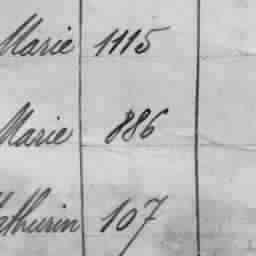 Marie 1115
Marie 886
Mathurin 107